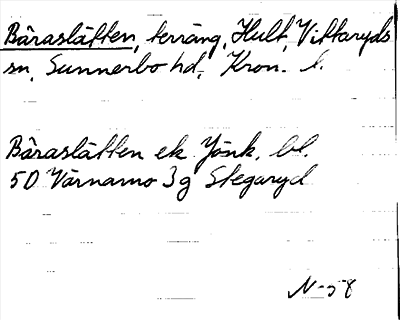 Båraslätten, terräng, Hult, Vittaryds
sn, Sunnerbo hd, Kron. l.
Båraslätten ek Jönk. bl.
50 Värnamo 3g Stegaryd
N-58